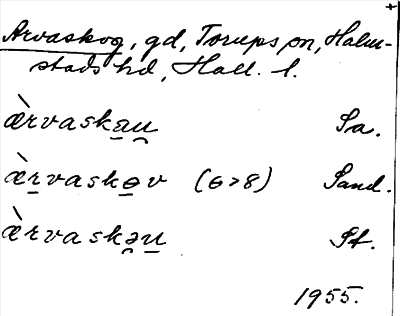 Arvaskog, gd, Torups sn, Halm-
stads hd, Hall. l.
æ̀rvaska̲u̲̯ Sa.
æ̀r̲vaskɵ̲v (ɵ>8) Sand.
æ̀rvaskə̯u̲ St.
1955.